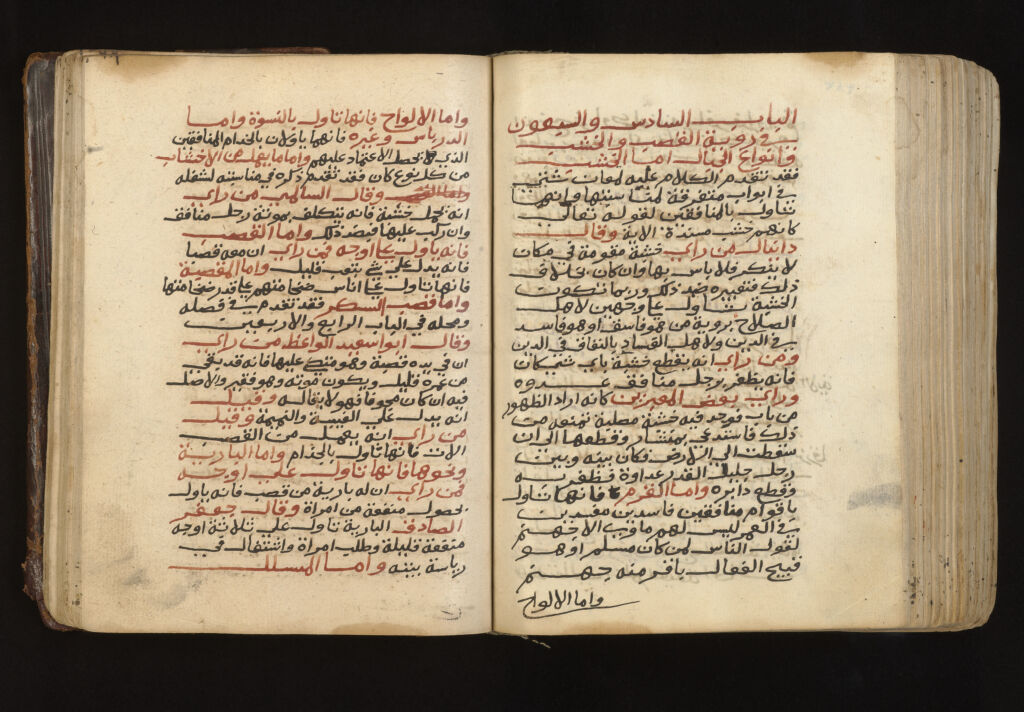 الباب السادس والسبعون
في روية القصب والخشب
وانواع الحبال اما الخشب
فقد تقدم الكلام عليه لمعان شتى
في ابواب متفرقة لمناسبتها وانها
تتاول بالمنافقين لقوله تعالى
كانهم خشب مسندة الاية وقال
دانيال من راى خشبة مقومة في مكان
لا ينكر فلا باس بها وان كان بخلاف
ذلك فتعبيره ضد ذلك وربما تكون
الخشبة تتاول على وجهين لاهل
الصلاح بروية من هو فاسق او هو فاسد
في الدين ولاهل الفساد بالنفاق في الدين
ومن راى انه يقطع خشبة باى شى كان
فانه يظفر برجل منافق عدوه
وراى بعض المعبرين كانه اراد الظهور
من باب فوجد فيه خشبة مصلبة تمنعه من
ذلك فاستدعى بمنشار وقطعها الى ان
سقطت الى الارض فكان بينه وبين
رجل جليل القدر عداوة فظفر به
وقطع دابره واما القرم فانها تتاول
باقوام منافقين فاسدين مفسدين
في العمر ليس لهم ماوى الا جهنم
لقول الناس لمن كان مسلم او هو
قبيح الفعال ياقرمنه جهنم
واما الالواح
واما الالواح فانها تاول بالنسوة واما
الدرباس وغيره فانهما ياولان بالخدام المنافقين
الذى لا يحصل الاعتماد عليهم واما ما يعمل من الاخشاب
من كل نوع كان فقد تقدم ذكره في مناسبته لشغله
وقال السالمى من راى
انه يحمل خشبة فانه يتكلف بمونة رجل منافق
وان ركب عليها فضد ذلك واما القصب
فانه ياول على اوجه فمن راى ان معه قصبا
فانه يدل على شى بتعب قليل واما المقصبة
فانها تاول على اناس ضخامنهم على قدر ضخامتها
واما قصب السكر فقد تقدم في فصله
ومحله في الباب الرابع والاربعين
وقال ابو اسعيد الواعظ من راى
ان في يده قصبة وهو متكى عليها فانه قد بقى
من عمره قليل ويكون موته وهو فقير والاصل
فيه ان كان مجوفا فهو لا بقا له وقيل
انه يدل على الغيبة والنميمة وقيل
من راى انه يعمل من القصب
الات فانها تاول بالخدام واما البارية
ونحوها فانها تاول على اوجه
فمن راى ان له بارية من قصب فانه ياول
بحصول منفعة من امراة وقال جعفر
الصادق البارية تاول على ثلاثة اوجه
منفعة قليلة وطلب امراة واشتغال في
رياسة بيته واما المسلك